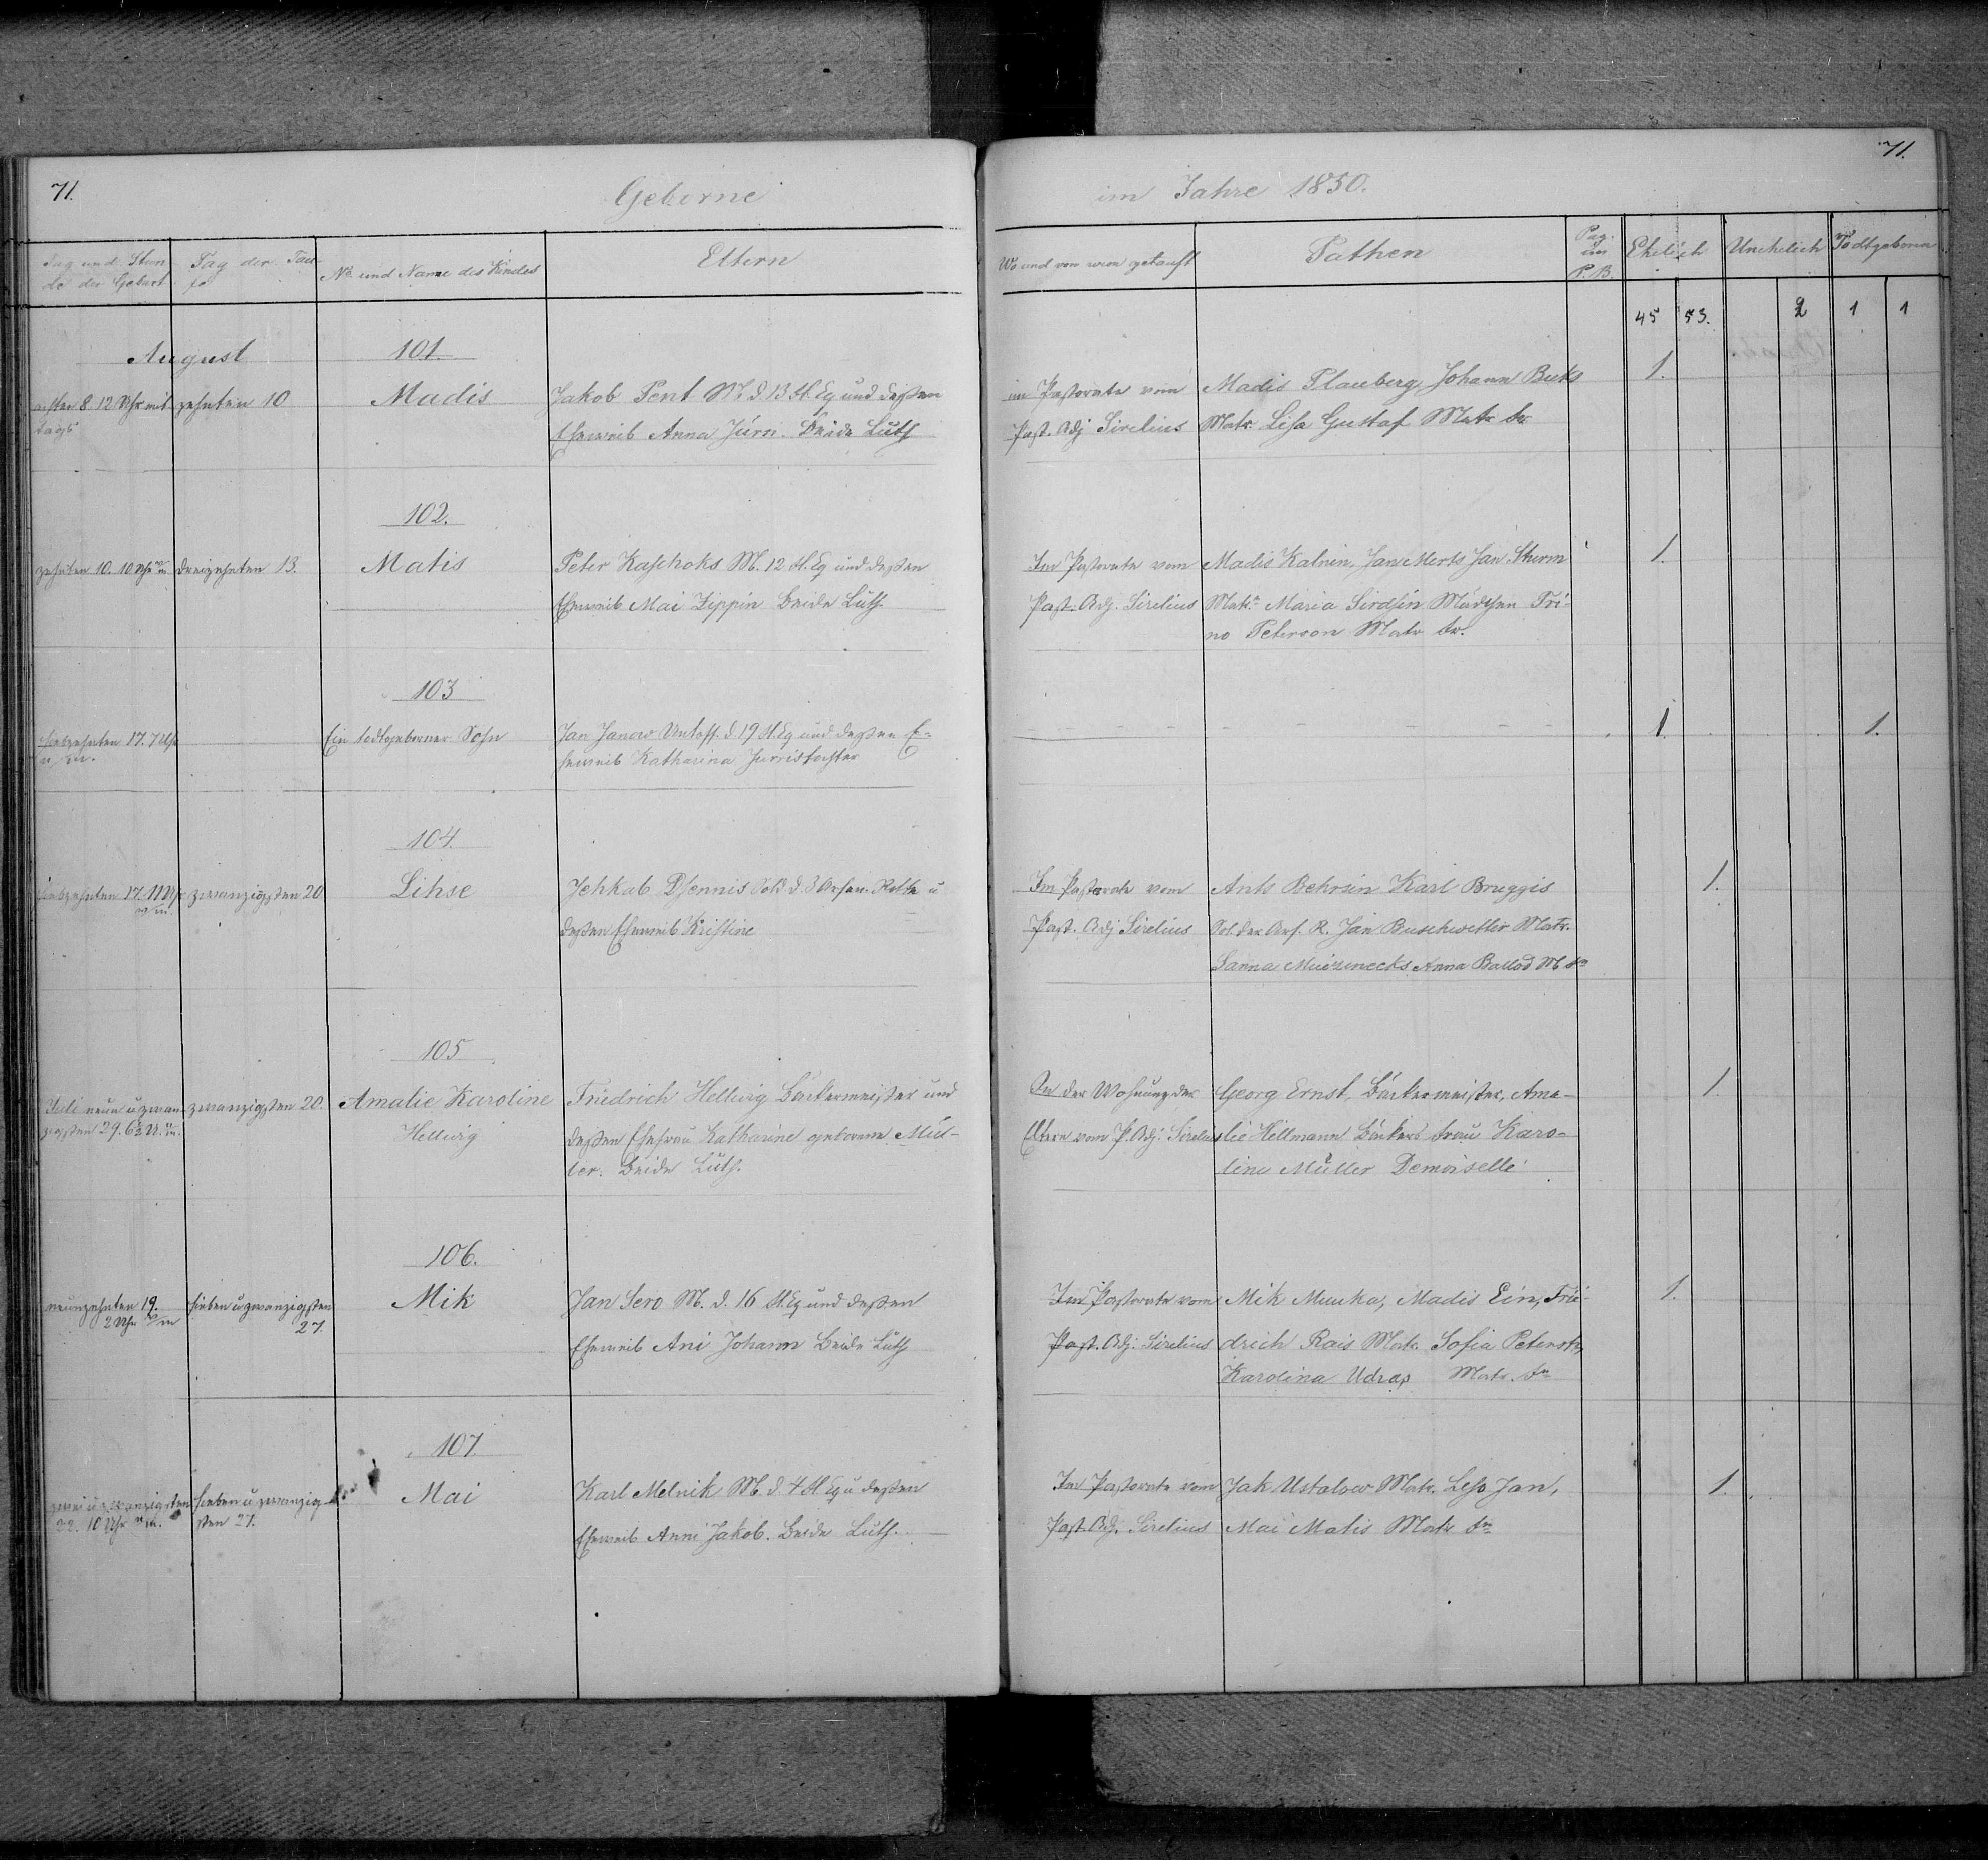 71.
Geborne
Tag und Stun-
de der Geburt
Tag der Tau-
fe
No. und Name des Kindes
Eltern
August
101.
achten 8. 12 Uhr mit
tags
zehnten 10
Madis
Jakob Pent M. d 13 Fl. Eq und dessen
Eheweib Anna Jürri. Beide Luth
102.
zehnten 10. 10 Uhr
dreizehnten 13.
Matis
Peter Kaschoks M. 12 Fl. Eq und dessen
Eheweib Mai Zippin beide Luth
103
siebzehnten 17. 7 Uhr
Ein todtgeborner Sohn
Jan Janow Untoff. d. 19 Fl. Eq und dessen E-
heweib Katharina Jurristochter
104.
siebzehnten 17. 11 Uhr
v/m.
zwanzigsten 20
Lihse
Jehkab Dsennis Sold d. 3 Arsen. Rotte u
dessen Eheweib Kristine
105
Juli neun u zwan-
zigsten 29. 6½ U.
zwanzigsten 20.
Amalie Karoline
Hellwig
Friedrich Hellwig Bäckermeister und
dessen Ehefrau Katharine geborene Mül-
ler. Beide Luth.
106.
neunzehnten 19.
2 Uhr v/m
sieben u zwanzigsten
27.
Mik
Jan Sero M. d. 16 Fl. Eq und dessen
Eheweib Ani Johann beide Luth
107
zwei u zwanzigsten
22. 10 Uhr
sieben u zwanzig-
sten 27.
Mai
Karl Melnik M. d. 4 Fl Eq u dessen
Eheweib Anni Jakob. Beide Luth.
71.
im Jahre 1850.
Wo und von wem getauft
Pathen
Pag.
im
P.B.
Ehelich
Unehelich
Todtgeboren
45 53. 2 1 1
im Pastorate vom
Past. Adj Sirelius
Madis Plauberg, Johann Buks
Matr. Lisa Gustaf Matr
1.
Im Pastorate vom
Past. Adj. Sirelius
Madis Kalnin, Jan Merts Jan Sturm
Matr. Maria Sirdsin Mädchen Tri-
no Peterson Matr
1.
1. 1.
Im Pastorate vom
Past. Adj Sirelius
Ants Behrsin Karl Bruggis
Sol. der Ars. R. Jan Buschwetter Matr.
Sanna Muizeneeks Anna Ballod M.
1.
In der Wohnung der
Eltern vom P. Adj. Sirelius
Georg Ernst, Bäckermeister, Ama-
lie Hellmann Bäckers frau Karo-
line Müller Demoiselle
1.
Im Pastorate vom
Past. Adj. Sirelius
Mik Muuka, Madis Ein, Frie-
drich Rais Matr. Sofia
Karolina Udras Matr.
1.
Im Pastorate vom
Past. Adj. Sirelius
Jak Ustalow Matr. Leso Jan,
Mai Matis Matr
1.